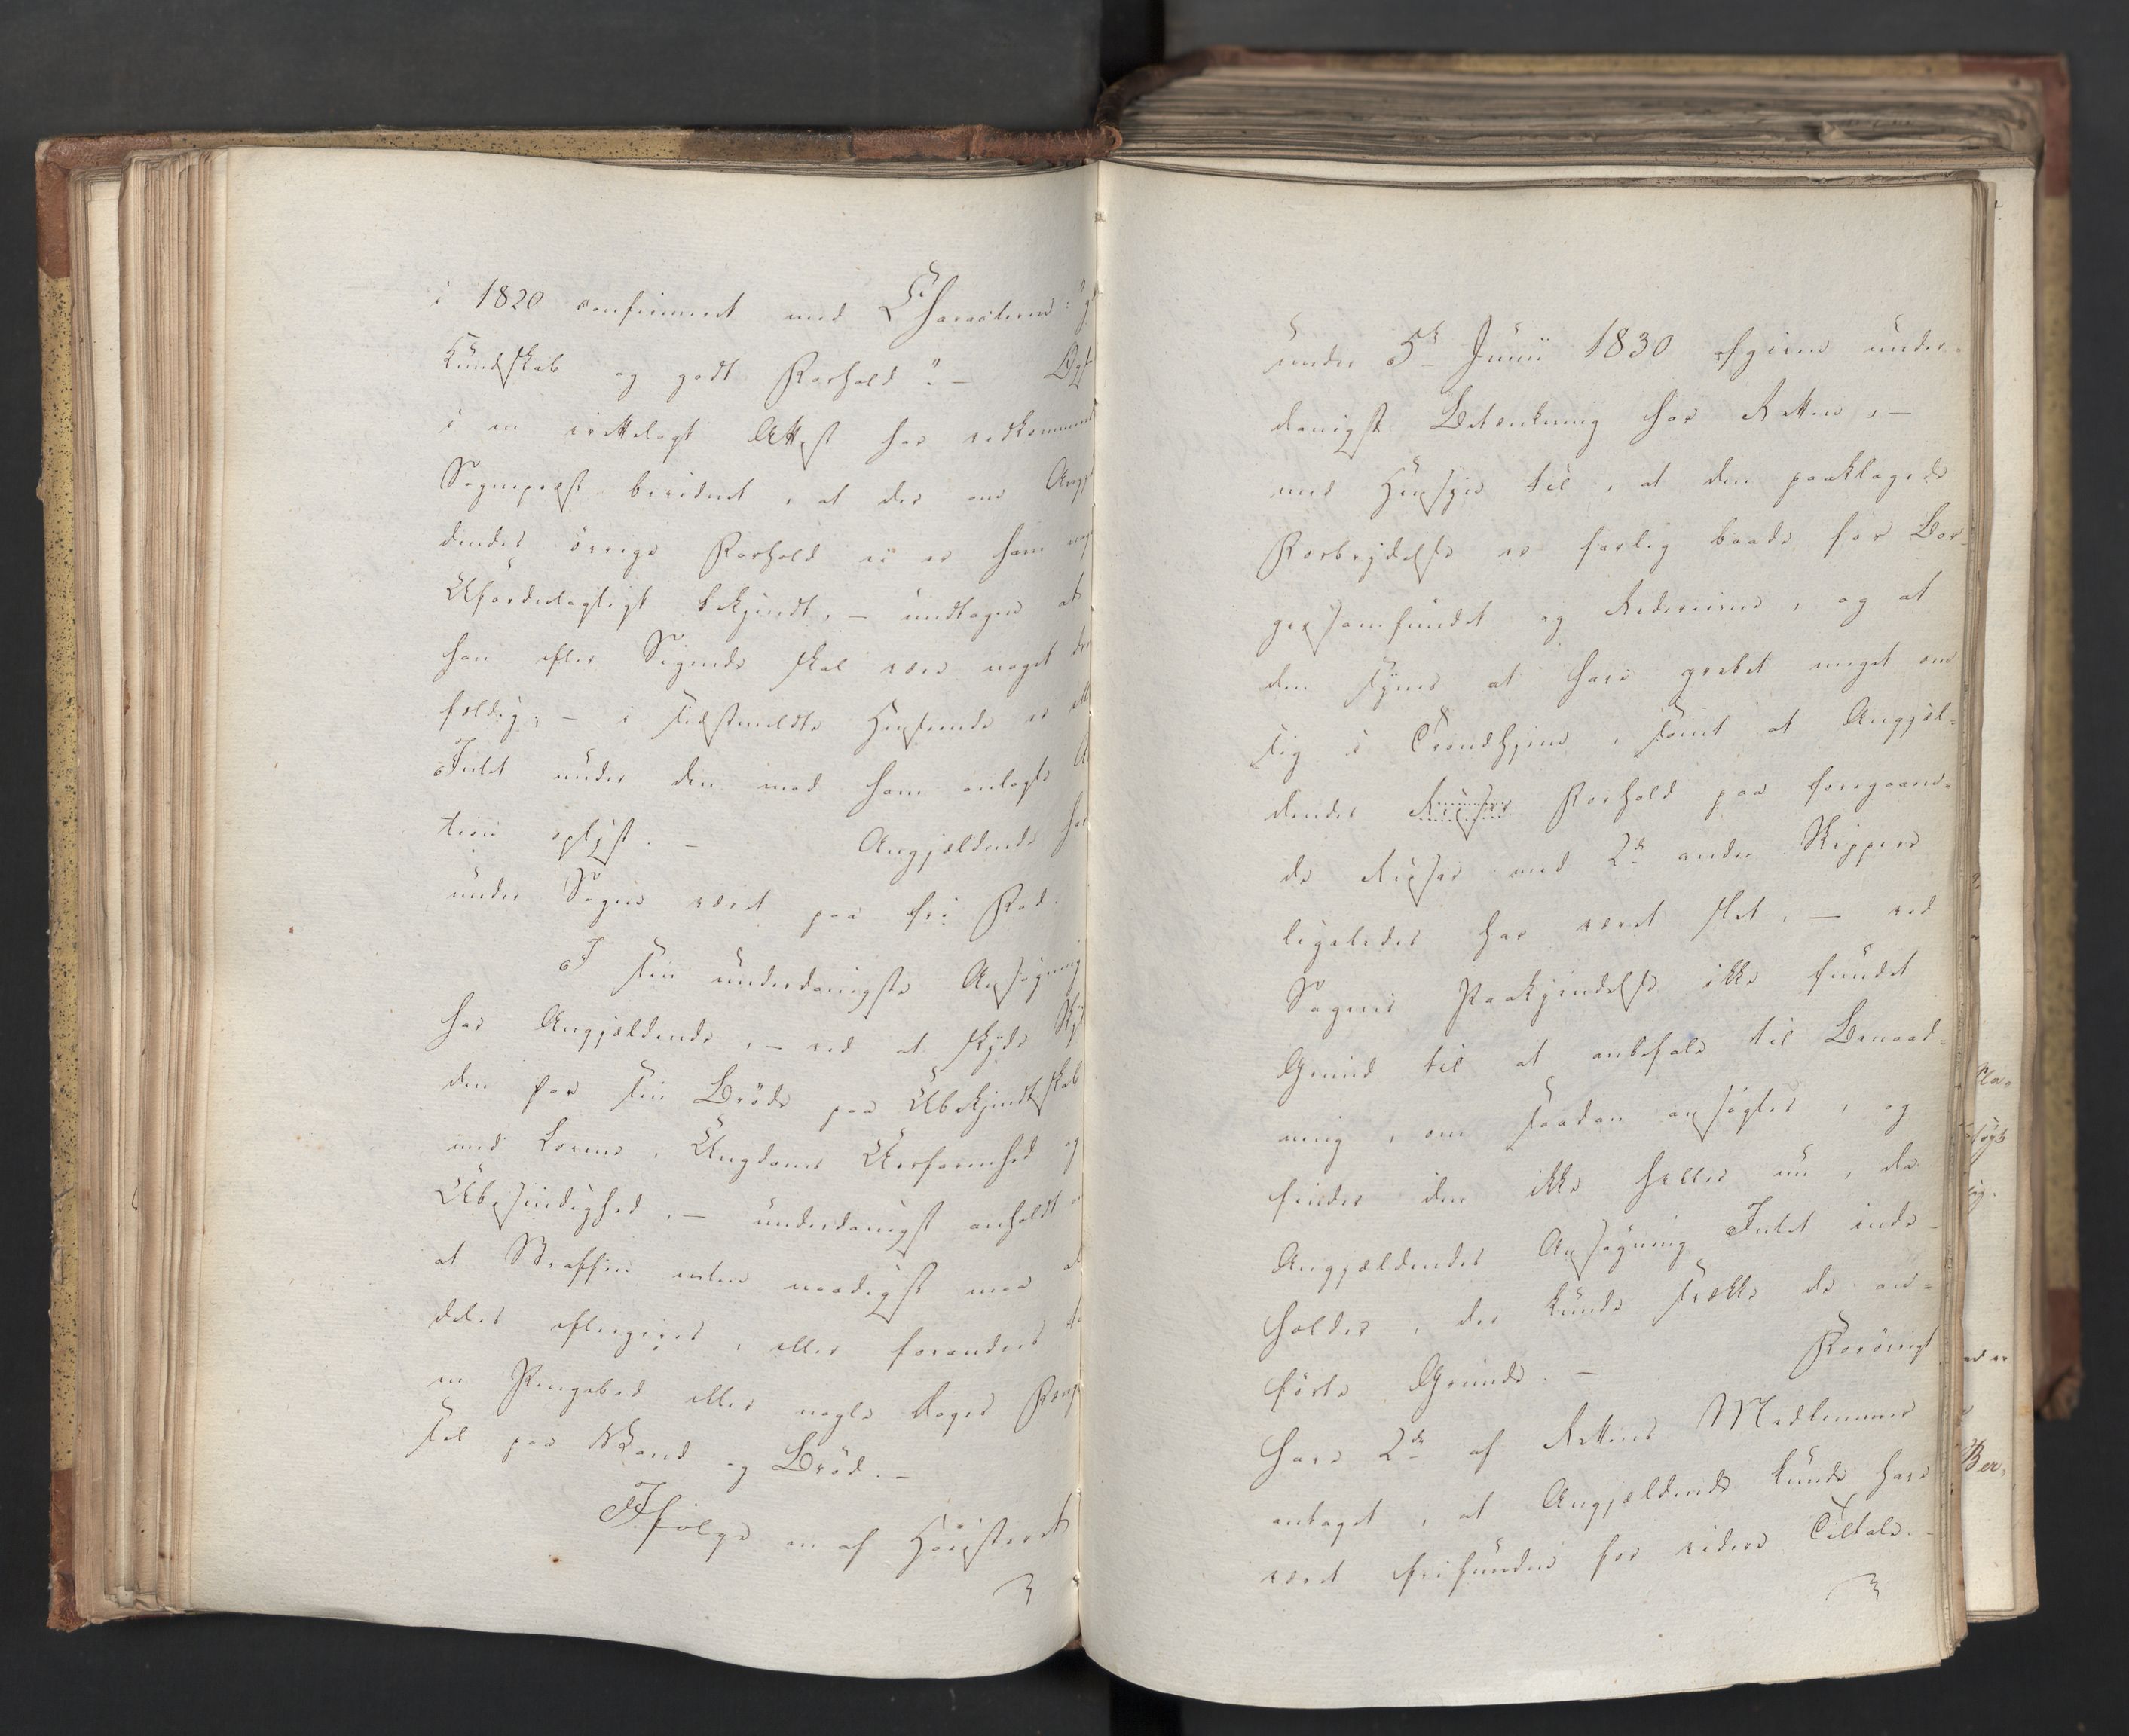 i 1820 confirmeret med Characteren: "g
Kundskab og godt Forhold". — Ogs
i en irettelagt Attest har vedkommend
Sognepræst bevidnet, at der om Angj
dendes övrige Forhold ei er ham nog
Ufordeelagtigt bekjendt, — undtagen at
han efter Sigende skal være noget dr
fældig; — i sidstmeldte Henseende er ell
Intet under den mod ham anlagte A
tion oplyst. — Angjældende ha
under Sagen været paa fri Fod.
I sin underdanigste Ansögning
har Angjældende, — ved at skyde Sky
den for sin Bröde paa Ubekjendtskab
med Loven, Ungdoms Uerfarenhed og
Ubesindighed, — underdanigst anholdt o
at Straffen enten naadigst maa al
deles eftergives, eller forandres til
en Pengebod eller nogle Dages Fæng
sel paa Vand og Bröd. —
Ifölge en af Höiesteret
under 5te Junii 1830 afgiven under-
danigst Betænkning har Retten, —
med Hensyn til, at den paaklagede
Forbrydelse er farlig baade for Bor-
gersamfundet og Rederierne, og at
den synes at have grebet meget om
sig i Trondhjem, samt at Angjæl-
dendes Reiser Forhold paa foregaaen-
de Reiser med 2de andre Skippere
ligeledes har været slet, — ved
Sagens Paakjendelse ikke fundet
Grund til at anbefale til Benaad-
ning, om saadan ansögtes, og
finder den ikke heller nu, da
Angjældendes Ansögning Intet inde-
holder, der kunde svække de an-
förte Grunde. — Forövrigt
have 2de af Rettens Medlemmer
antaget, at Angjældende kunde have
været frifunden for videre Tiltale. —